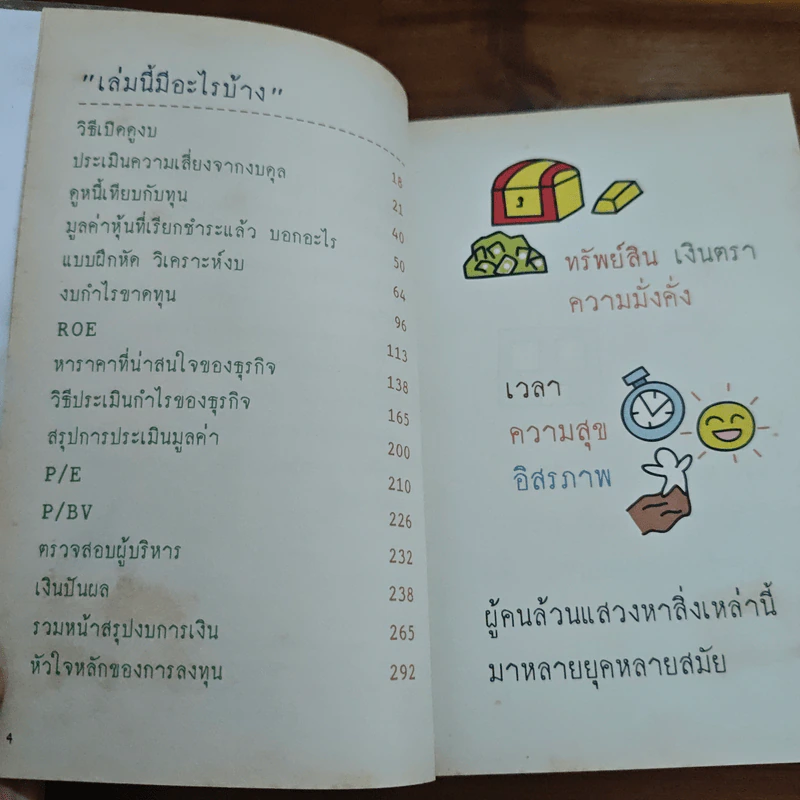 "เล่มนี้มีอะไรบ้าง"
วิธีเปิดดูงบ 18
ประเมินความเสี่ยงจากงบดุล 21
ดูหนี้เทียบกับทุน 40
มูลค่าหุ้นที่เรียกชำระแล้ว บอกอะไร 50
แบบฝึกหัด วิเคราะห์งบ 64
งบกำไรขาดทุน 96
ROE 113
หาราคาที่น่าสนใจของธุรกิจ 138
วิธีประเมินกำไรของธุรกิจ 165
สรุปการประเมินมูลค่า 200
P/E 210
P/BV 226
ตรวจสอบผู้บริหาร 232
เงินปันผล 238
รวมหน้าสรุปงบการเงิน 265
หัวใจหลักของการลงทุน 292
4
ทรัพย์สิน เงินตรา
ความมั่งคั่ง
เวลา
ความสุข
อิสรภาพ
ผู้คนล้วนแสวงหาสิ่งเหล่านี้
มาหลายยุคหลายสมัย